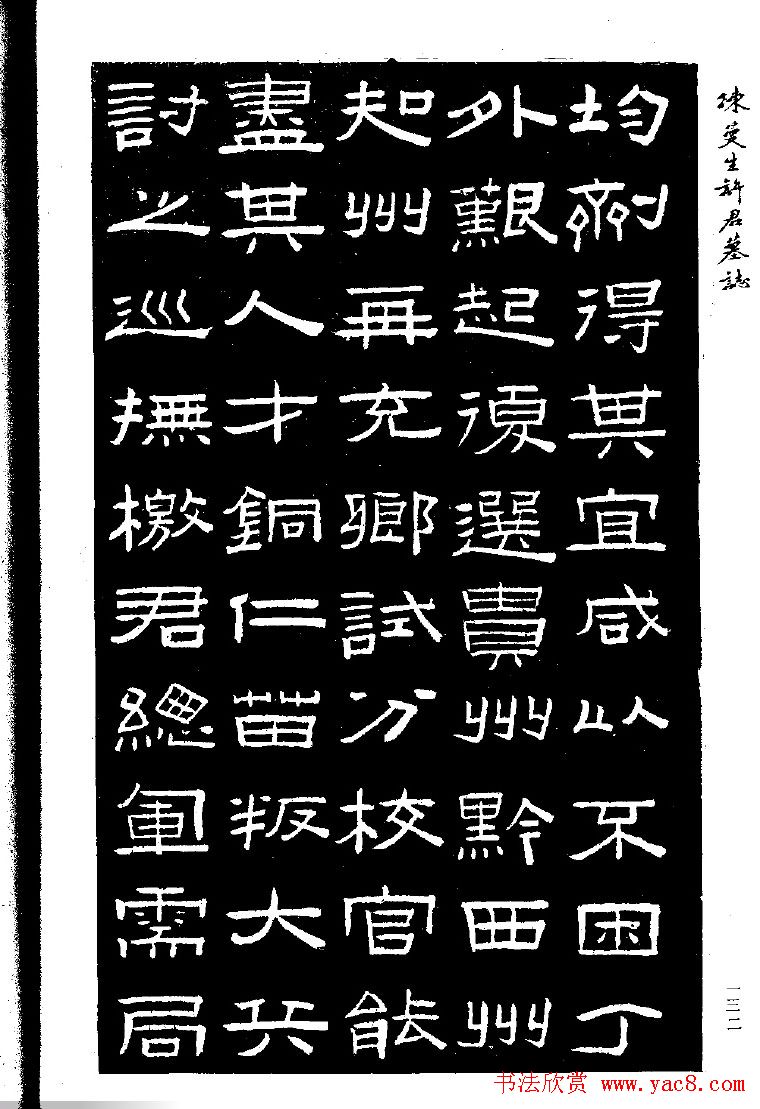 陳曼生許君墓誌
均劑得其宜咸以不困丁
外艱起復選貴州黔西州
知州再充鄉試分校官能
盡其人才銅仁苗叛大兵
討之巡撫檄君總軍需局
一三二
书法欣赏 www.yac8.com